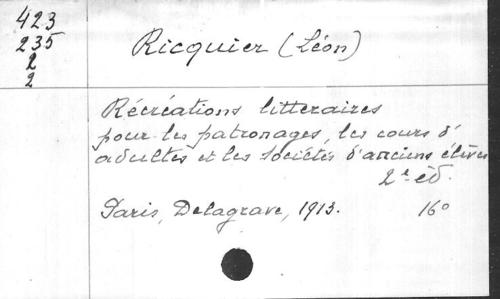 423
235
2
2
Ricquier (Léon)
Récréations litteraires
pour les patronages, les cours d'
adultes et les sociétés d'anciens élèves
2e éd.
Paris, Delagrave, 1913. 16°